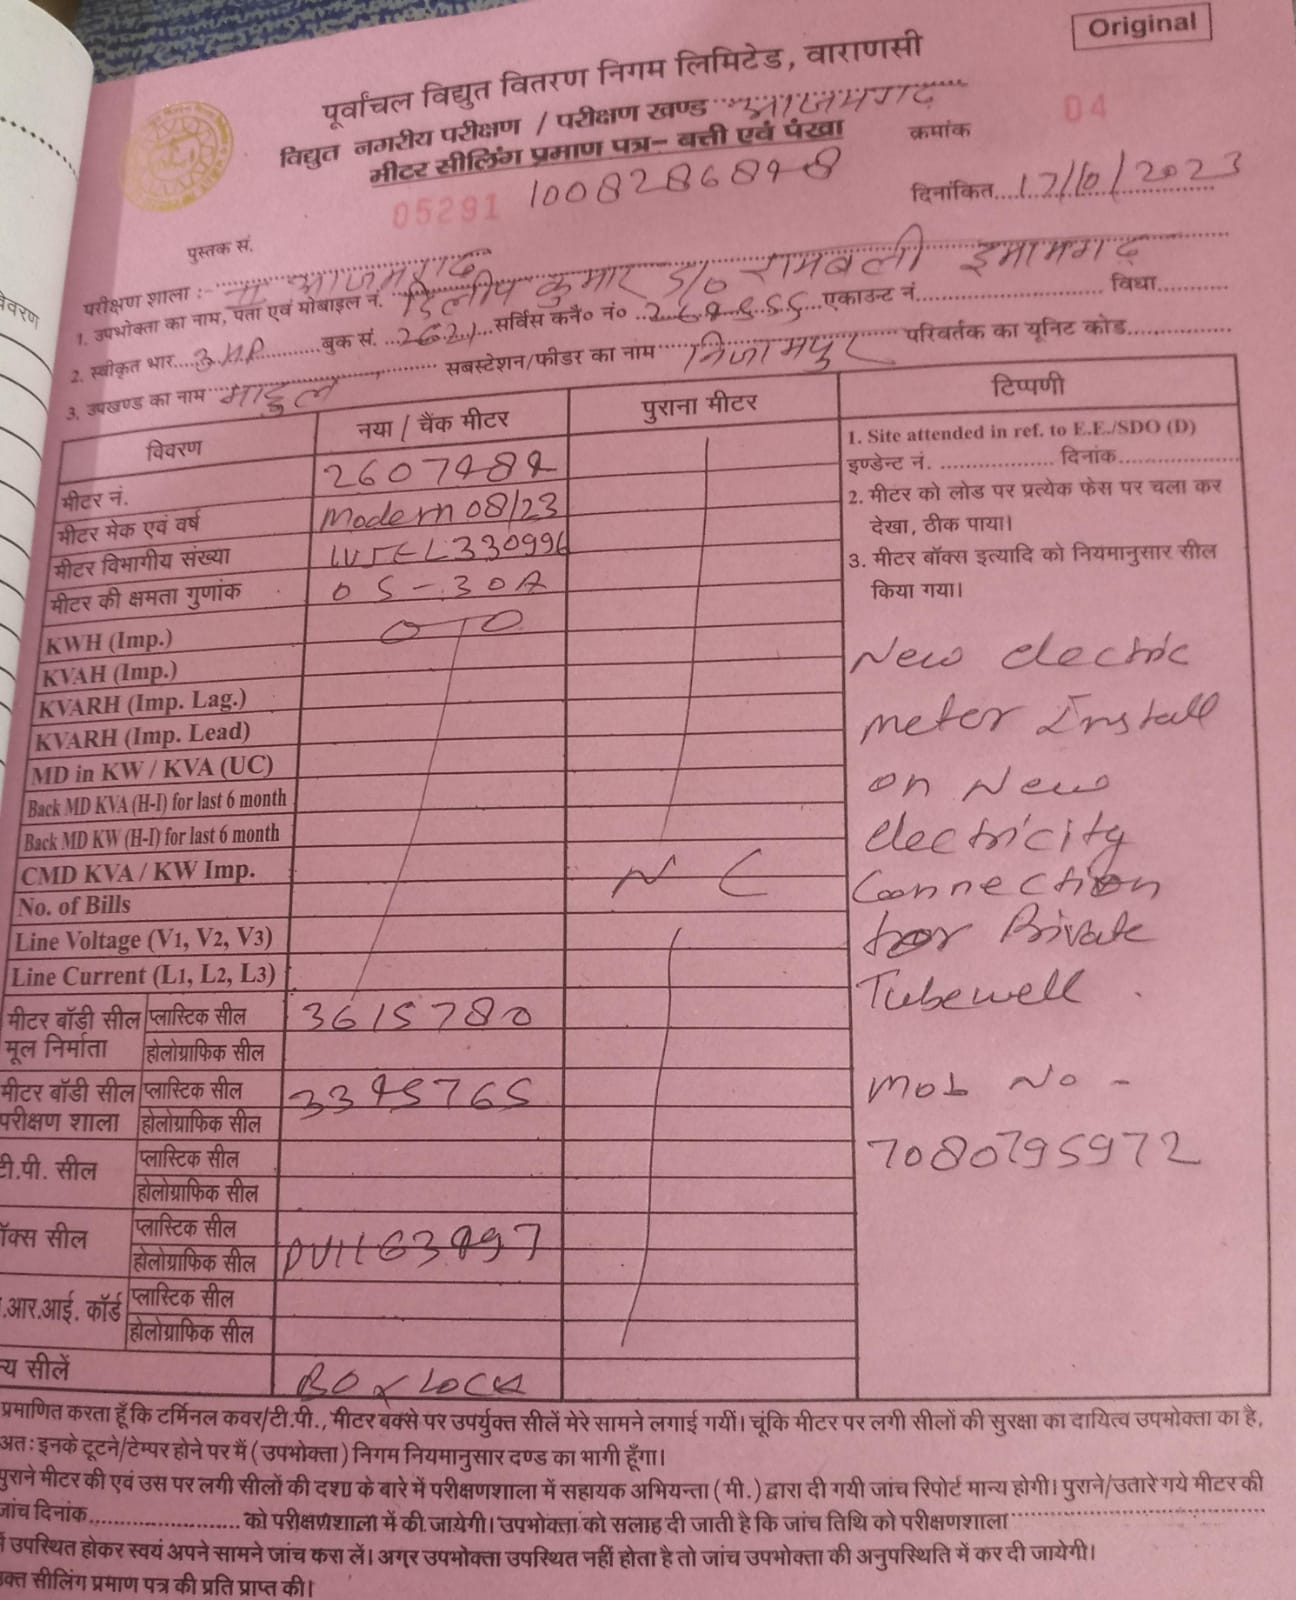 Original
पूर्वांचल विद्युत वितरण निगम लिमिटेड, वाराणसी
विद्युत नगरीय परीक्षण / परीक्षण खण्ड आजमगढ़
मीटर सीलिंग प्रमाण पत्र– बत्ती एवं पंखा
क्रमांक 04
05291
दिनांकित 17/10/2023
पुस्तक सं.
परीक्षण शाला :- आजमगढ़
1. उपभोक्ता का नाम, पता एवं मोबाइल नं. दिलीप कुमार S/o रामबली इमामगढ़
2. स्वीकृत भार 3 H.P बुक सं. 2621 सर्विस कनै० नं० एकाउन्ट नं. विधा
3. उपखण्ड का नाम माहुल सबस्टेशन/फीडर का नाम निजामपुर परिवर्तक का यूनिट कोड
विवरण नया / चैंक मीटर पुराना मीटर टिप्पणी
मीटर नं. 2607484
मीटर मेक एवं वर्ष Modern 08/23
मीटर विभागीय संख्या
मीटर की क्षमता गुणांक 05-30A
KWH (Imp.)
KVAH (Imp.)
KVARH (Imp. Lag.)
KVARH (Imp. Lead)
MD in KW / KVA (UC)
Back MD KVA (H-I) for last 6 month
Back MD KW (H-I) for last 6 month
CMD KVA / KW Imp. N C
No. of Bills
Line Voltage (V1, V2, V3)
Line Current (L1, L2, L3)
मीटर बॉडी सील प्लास्टिक सील 3615780
मूल निर्माता होलोग्राफिक सील
मीटर बॉडी सील प्लास्टिक सील 3345765
परीक्षण शाला होलोग्राफिक सील
टी.पी. सील प्लास्टिक सील
होलोग्राफिक सील
ॉक्स सील प्लास्टिक सील
होलोग्राफिक सील
.आर.आई. कॉर्ड प्लास्टिक सील
होलोग्राफिक सील
न्य सीलें BOX LOCK
1. Site attended in ref. to E.E./SDO (D)
इण्डेन्ट नं. दिनांक
2. मीटर को लोड पर प्रत्येक फेस पर चला कर
देखा, ठीक पाया।
3. मीटर बॉक्स इत्यादि को नियमानुसार सील
किया गया।
New electric
meter Install
on New
electricity
Connection
for Private
Tubewell .
Mob No -
7080795972
प्रमाणित करता हूँ कि टर्मिनल कवर/टी.पी., मीटर बक्से पर उपर्युक्त सीलें मेरे सामने लगाई गयीं। चूंकि मीटर पर लगी सीलों की सुरक्षा का दायित्व उपभोक्ता का है,
अतः इनके टूटने/टेम्पर होने पर मैं (उपभोक्ता) निगम नियमानुसार दण्ड का भागी हूँगा।
पुराने मीटर की एवं उस पर लगी सीलों की दशा के बारे में परीक्षणशाला में सहायक अभियन्ता (मी.) द्वारा दी गयी जांच रिपोर्ट मान्य होगी। पुराने/उतारे गये मीटर की
जांच दिनांक को परीक्षणशाला में की जायेगी। उपभोक्ता को सलाह दी जाती है कि जांच तिथि को परीक्षणशाला
में उपस्थित होकर स्वयं अपने सामने जांच करा लें। अगर उपभोक्ता उपस्थित नहीं होता है तो जांच उपभोक्ता की अनुपस्थिति में कर दी जायेगी।
क्त सीलिंग प्रमाण पत्र की प्रति प्राप्त की।